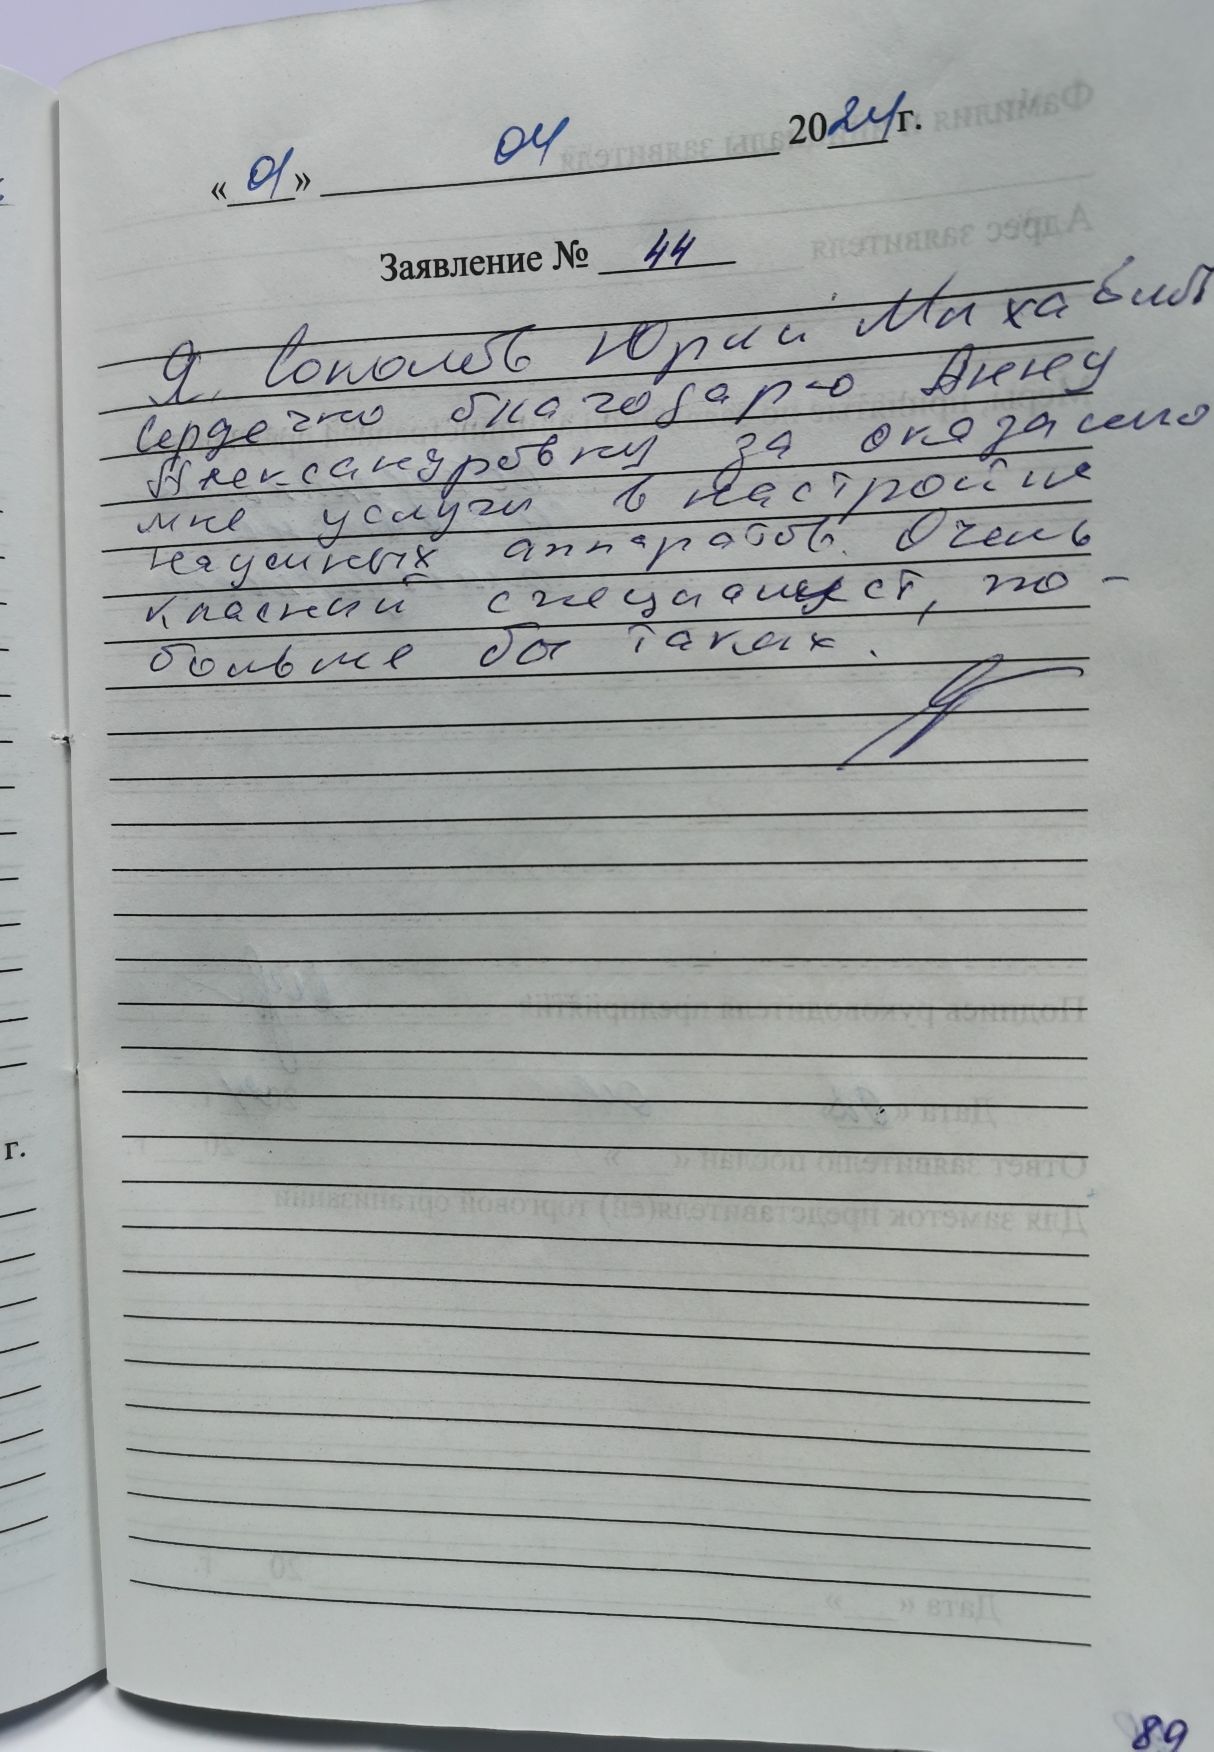 «01» 04 2024 г.
Заявление № 44
Я, Соколов Юрий Миха
сердечно благодарю Анну
Александровну за оказано
мне услуги в настройке
наушных аппаратов. Очень
класный специалист, по-
больше бы таких.
г.
89